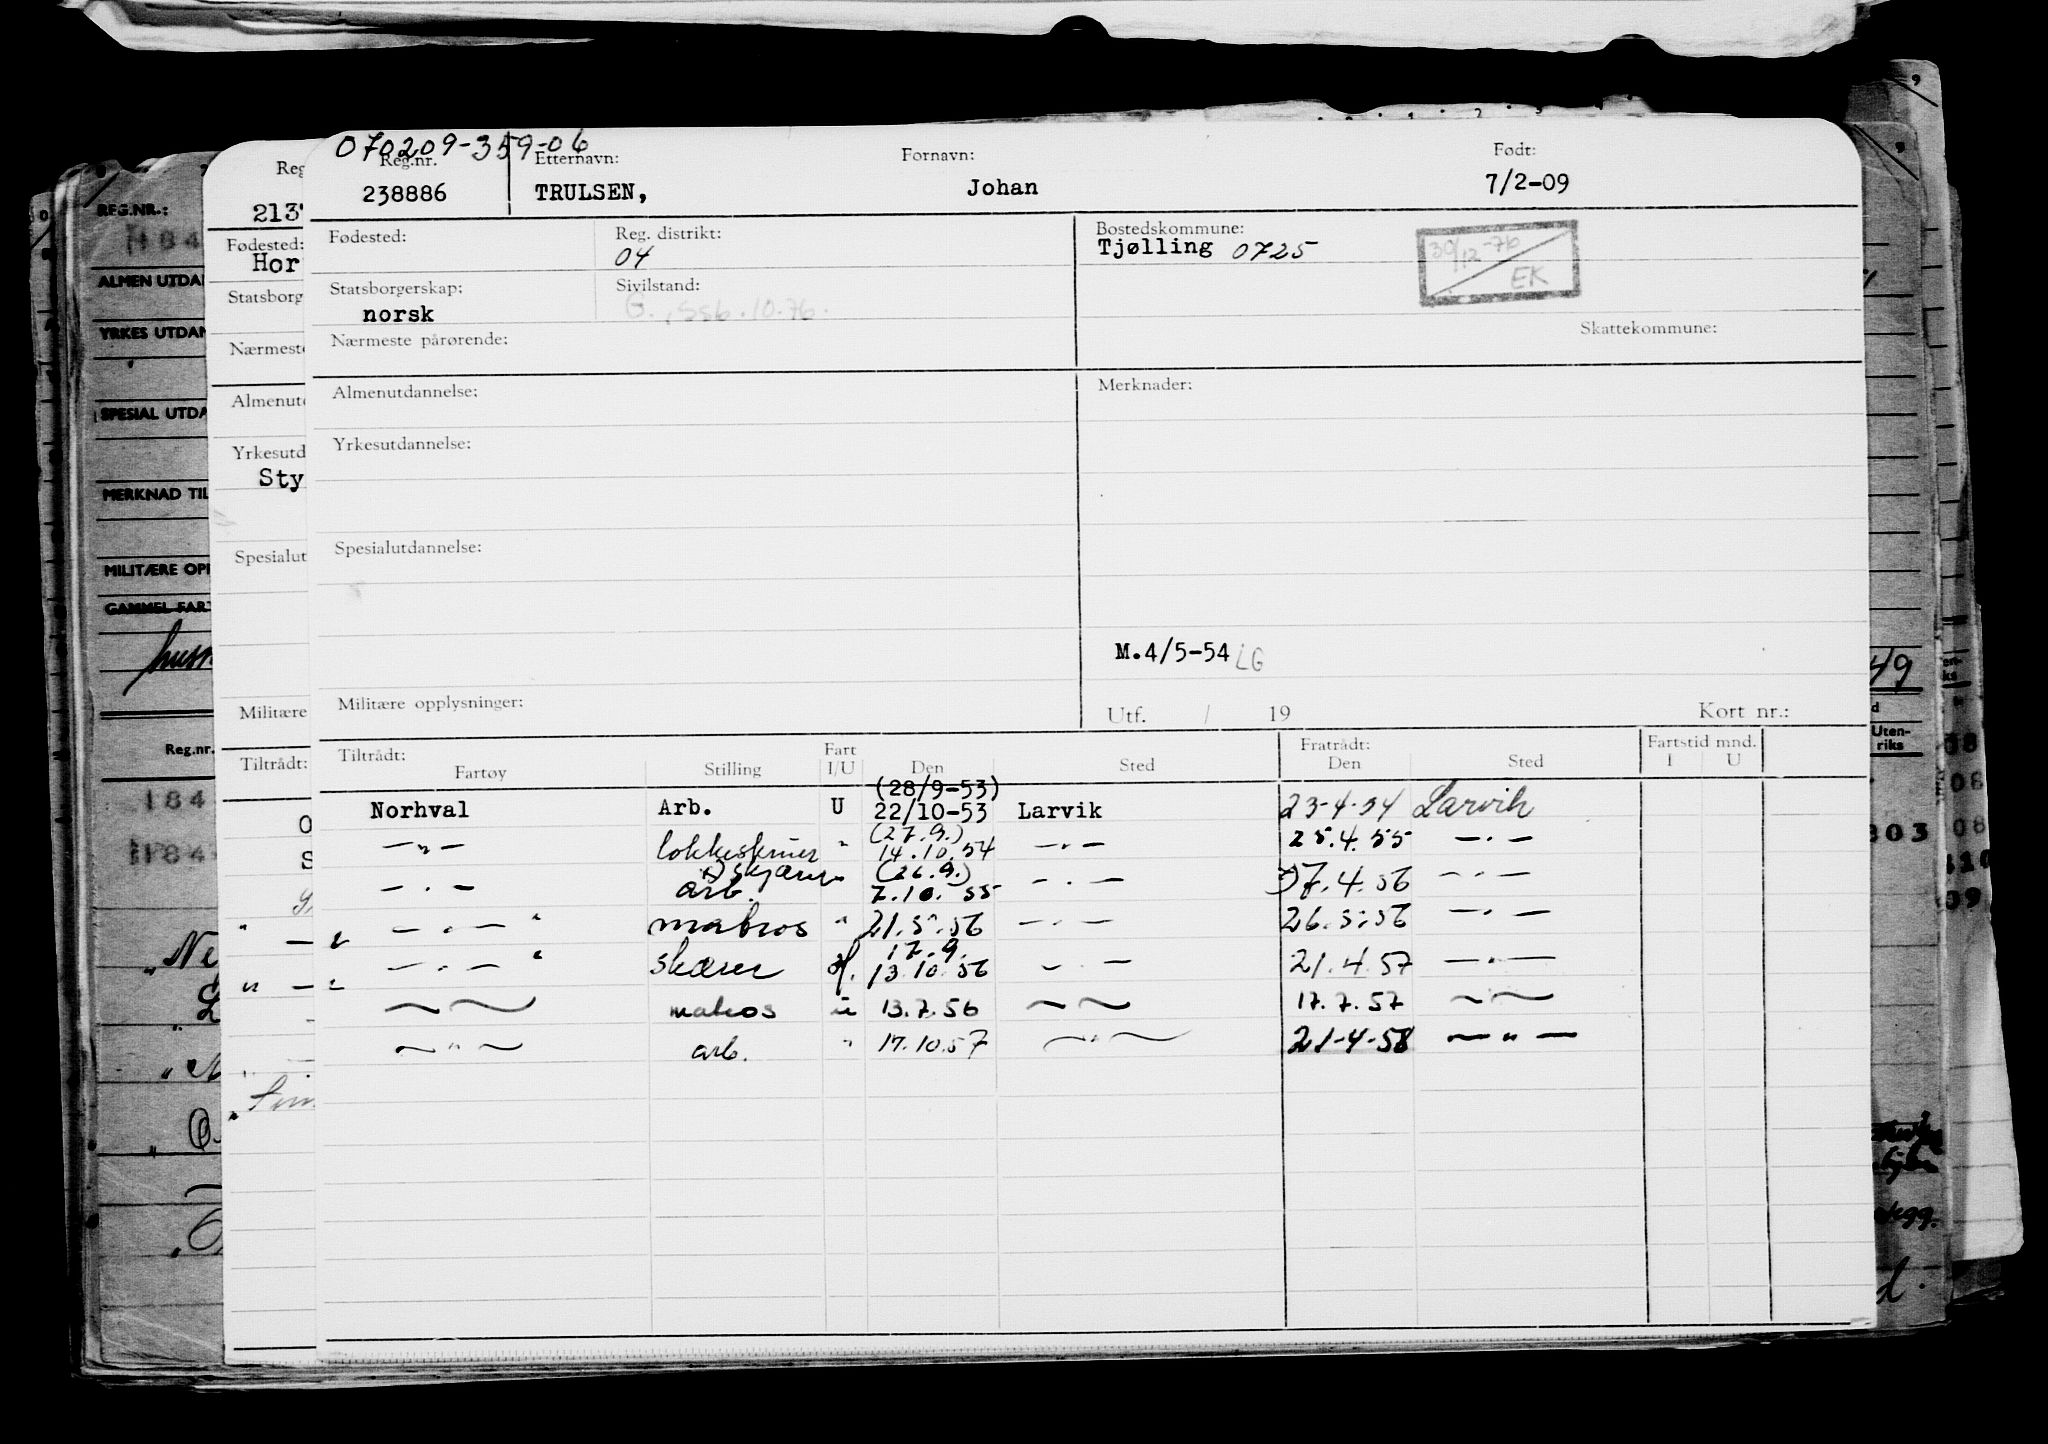 070209-359-06
Reg.nr. Etternavn: Fornavn: Født:
238886 TRULSEN, Johan 7/2-09
Fødested: Reg. distrikt: Bostedskommune:
04 Tjølling 0725
30/12-76
EK
Statsborgerskap: Sivilstand:
norsk G. , ssb.10.76.
Nærmeste pårørende: Skattekommune:
Almenutdannelse: Merknader:
Yrkesutdannelse:
Spesialutdannelse:
M.4/5-54 LG
Militære opplysninger: Utf. / 19 Kort nr.:
Tiltrådt: Fart Fratrådt: Fartstid mnd.
Fartøy Stilling I/U Den Sted Den Sted I U
(28/9-53)
Norhval Arb. U 22/10-53 Larvik 23-4-54 Larvik
(27.9.)
—„— " 14.10.54 —„— 25.4.55 —„—
(26.9.)
—„— arb. 7.10.55 —„— 7.4.56 —„—
—„— " matros " 21.5.56 —„— 26.5.56 —„—
17.9.
—„— " skærer 13.10.56 —„— 21.4.57 —„—
—„— matros u 13.7.56 —„— 17.7.57 —„—
—„— arb. " 17.10.57 —„— 21-4-58 —„—
Reg
213
Fødested:
Hor
Statsborg
Nærmeste
Almenut
Yrkesutd
Sty
Spesialut
Militære
Tiltrådt:
REG.NR.:
184
ALMEN UTDA
YRKES UTDAN
SPESIAL UTDA
MERKNAD TIL
MILITÆRE OPP
GAMMEL FART
Reg.nr.
184
184
49
Uten-
riks
303